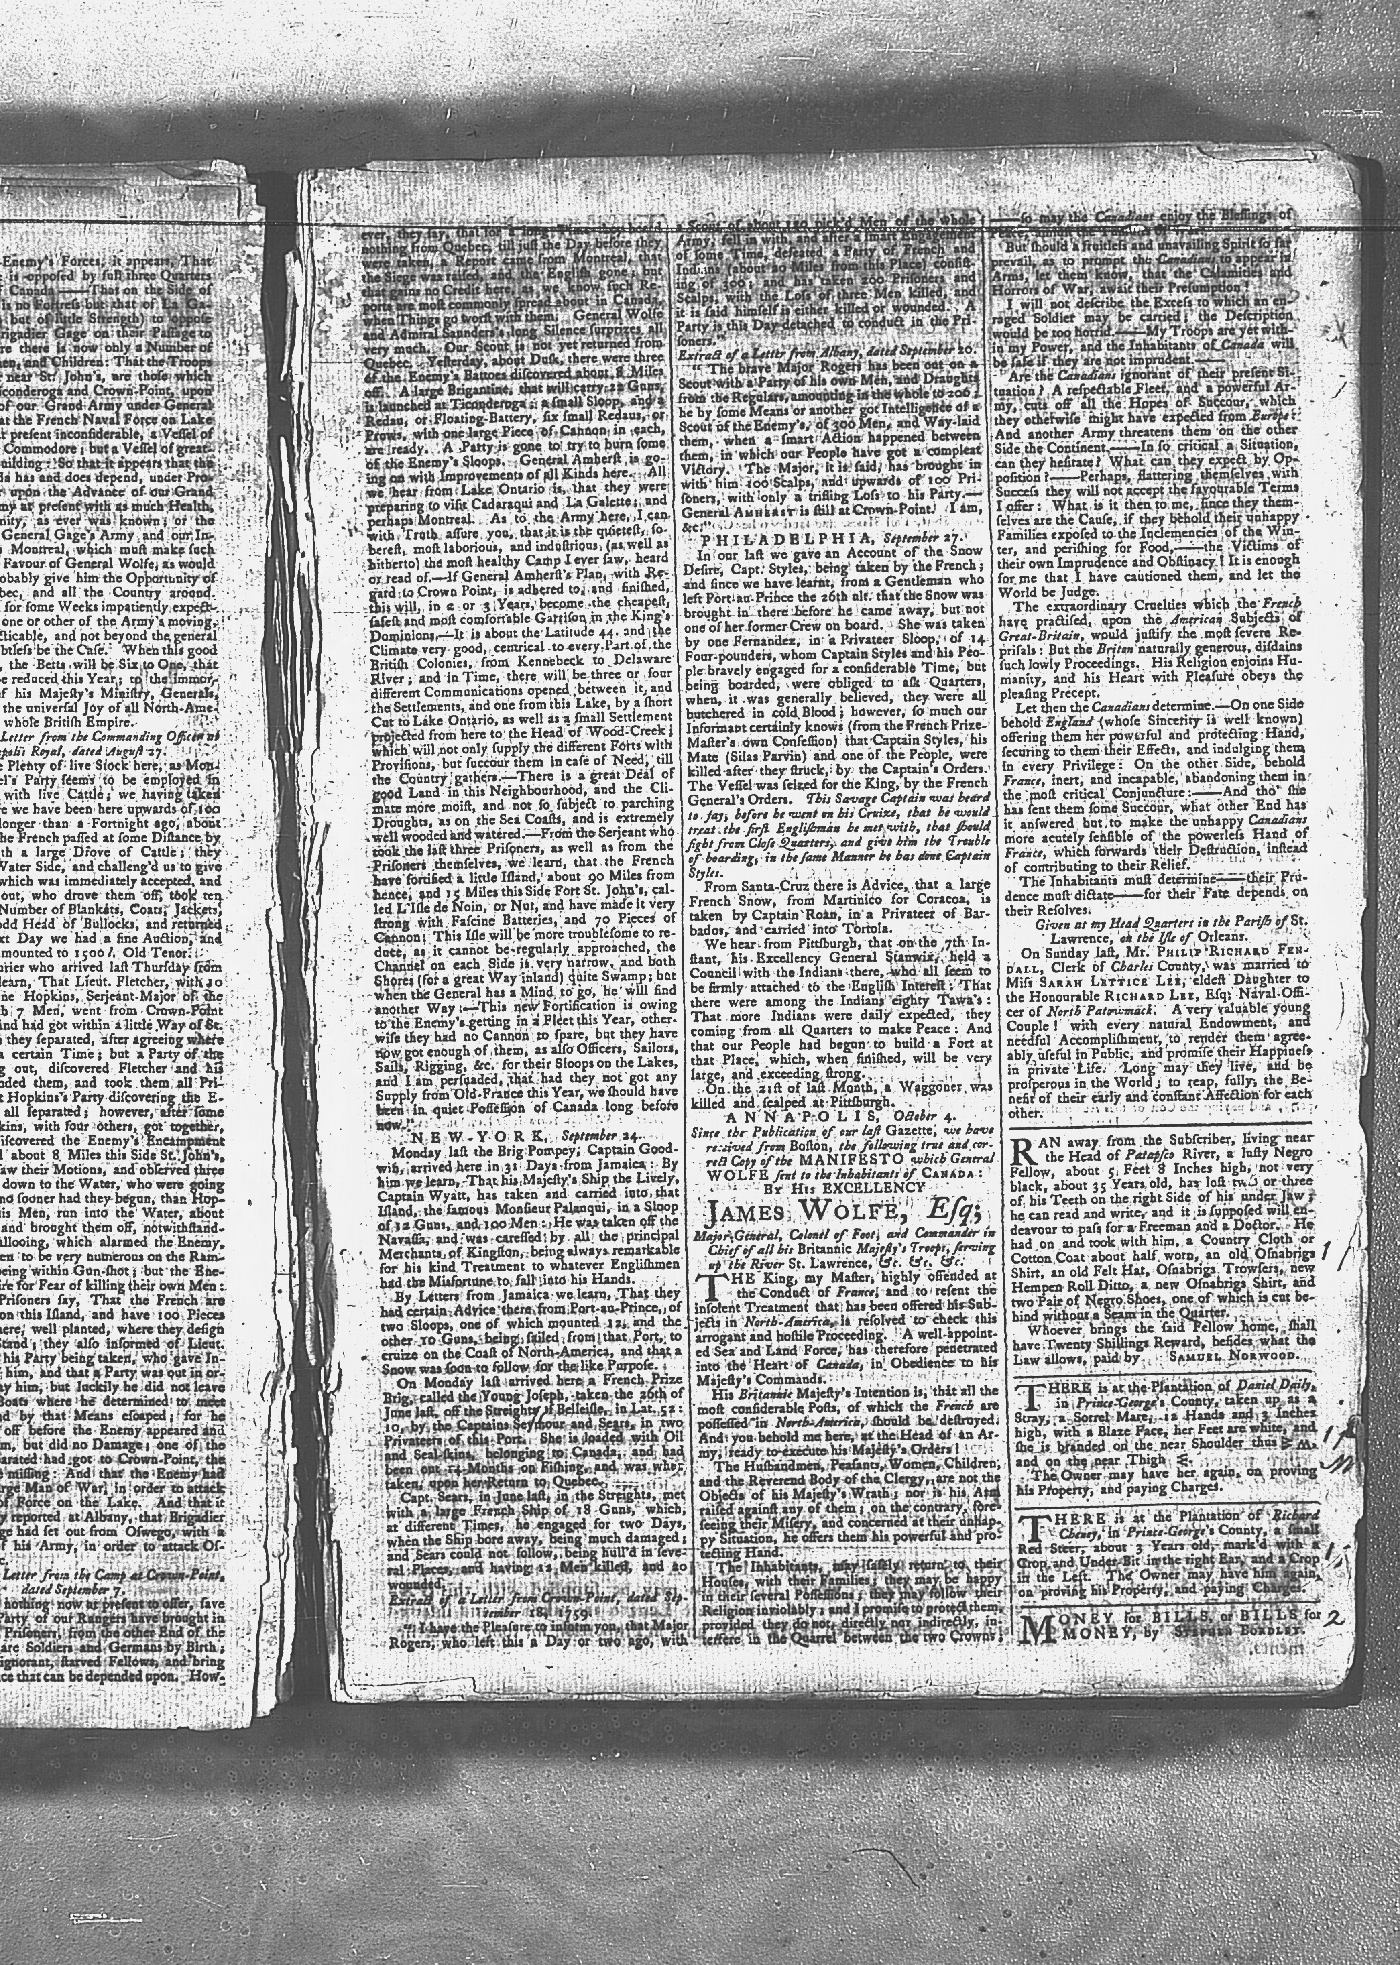 Enemy's Forces, it appears, That
is opposed by full three Quarters
Canada ——That on the Side of
is no Fortress but that of La Ga-
but of little Strength) to oppose
rigadier Gage on their Passage to
re there is now only a Number of
en, and Children: That the Troops
near St. John's, are those which
iconderoga and Crown-Point, upon
of our Grand Army under General
at the French Naval Force on Lake
t present inconsiderable, a Vessel of
Commodore; but a Vessel of great-
uilding: So that it appears that the
la has and does depend, under Pro-
upon the Advance of our Grand
my at present with as much Health,
nity, as ever was known; or the
General Gage's Army and our In-
Montreal, which must make such
Favour of General Wolfe, as would
obably give him the Opportunity of
bec, and all the Country around.
for some Weeks impatiently expect-
one or other of the Army's moving,
cticable, and not beyond the general
btless be the Case. When this good
, the Betts will be Six to One, that
e reduced this Year; to the immor-
f his Majesty's Ministry, Generals,
the universal Joy of all North-Ame-
whole British Empire.
Letter from the Commanding Officer at
polis Royal, dated August 27.
e Plenty of live Stock here, as Mon-
el's Party seems to be employed in
with live Cattle; we having taken
e we have been here upwards of 100
longer than a Fortnight ago, about
he French passed at some Distance by
th a large Drove of Cattle; they
Water Side, and challeng'd us to give
which was immediately accepted, and
out, who drove them off, took ten
Number of Blankets, Coats, Jackets,
odd Head of Bullocks, and returned
xt Day we had a fine Auction, and
mounted to 1500 l. Old Tenor.
rier who arrived last Thursday from
learn, That Lieut. Fletcher, with 10
ne Hopkins, Serjeant-Major of the
h 7 Men, went from Crown-Point
nd had got within a little Way of St.
they separated, after agreeing where
a certain Time; but a Party of the
g out, discovered Fletcher and his
nded them, and took them all Pri-
t Hopkins's Party discovering the E-
all separated; however, after some
kins, with four others, got together,
iscovered the Enemy's Encampment
about 8 Miles this Side St. John's,
aw their Motions, and observed three
down to the Water, who were going
no sooner had they begun, than Hop-
is Men, run into the Water, about
and brought them off, notwithstand-
allooing, which alarmed the Enemy,
en to be very numerous on the Ram-
eing within Gun-shot; but the Ene-
ire for Fear of killing their own Men:
Prisoners say, That the French are
on this Island, and have 100 Pieces
here, well planted, where they design
Stand; they also informed of Lieut.
his Party being taken, who gave In-
him, and that a Party was out in or-
y him, but luckily he did not leave
Boats where he determined to meet
d by that Means escaped; for he
off before the Enemy appeared and
m, but did no Damage; one of the
arated had got to Crown-Point, the
missing: And that the Enemy had
rge Man of War, in order to attack
f Force on the Lake. And that it
y reported at Albany, that Brigadier
ge had set out from Oswego, with a
f his Army, in order to attack Of-
Letter from the Camp at Crown-Point,
dated September 7.
nothing now at present to offer, save
Party of our Rangers have brought in
Prisoners, from the other End of the
are Soldiers and Germans by Birth;
ignorant, starved Fellows, and bring
ce that can be depended upon. How-
ever, they say, that for a long Time they heard
nothing from Quebec, till just the Day before they
were taken, a Report came from Montreal, that
the Siege was raised, and the English gone; but
that gains no Credit here, as we know such Re-
ports are most commonly spread about in Canada,
when Things go worst with them. General Wolfe
and Admiral Saunders's long Silence surprizes all
very much. Our Scout is not yet returned from
Quebec. Yesterday, about Dusk, there were three
of the Enemy's Battoes discovered about 8 Miles
off. A large Brigantine, that will carry 22 Guns,
is launched at Ticonderoga; a small Sloop, and a
Redau, or Floating-Battery, six small Redaus, or
Prows, with one large Piece of Cannon in each,
are ready. A Party is gone to try to burn some
of the Enemy's Sloops. General Amherst is go-
ing on with Improvements of all Kinds here. All
we hear from Lake Ontario is, that they were
preparing to visit Cadaraqui and La Galette, and
perhaps Montreal. As to the Army here, I can
with Truth assure you, that it is the quietest, so-
berest, most laborious, and industrious, (as well as
hitherto) the most healthy Camp I ever saw, heard
or read of.—If General Amherst's Plan, with Re-
gard to Crown Point, is adhered to, and finished,
this will, in 2 or 3 Years, become the cheapest,
safest and most comfortable Garrison in the King's
Dominions.—It is about the Latitude 44. and the
Climate very good, centrical to every Part of the
British Colonies, from Kennebeck to Delaware
River; and in Time, there will be three or four
different Communications opened between it, and
the Settlements, and one from this Lake, by a short
Cut to Lake Ontario, as well as a small Settlement
projected from here to the Head of Wood-Creek;
which will not only supply the different Forts with
Provisions, but succour them in case of Need, till
the Country gathers.—There is a great Deal of
good Land in this Neighbourhood, and the Cli-
mate more moist, and not so subject to parching
Droughts, as on the Sea Coasts, and is extremely
well wooded and watered.—From the Serjeant who
took the last three Prisoners, as well as from the
Prisoners themselves, we learn, that the French
have fortified a little Island, about 90 Miles from
hence, and 15 Miles this Side Fort St. John's, cal-
led L'Isle de Noin, or Nut, and have made it very
strong with Fascine Batteries, and 70 Pieces of
Cannon: This Isle will be more troublesome to re-
duce, as it cannot be regularly approached, the
Channel on each Side is very narrow, and both
Shores (for a great Way inland) quite Swamp; but
when the General has a Mind to go, he will find
another Way:—This new Fortification is owing
to the Enemy's getting in a Fleet this Year, other-
wise they had no Cannon to spare, but they have
now got enough of them, as also Officers, Sailors,
Sails, Rigging, &c. for their Sloops on the Lakes,
and I am persuaded, that had they not got any
Supply from Old-France this Year, we should have
been in quiet Possession of Canada long before
now."
NEW-YORK, September 24.
Monday last the Brig Pompey, Captain Good-
win, arrived here in 31 Days from Jamaica: By
him we learn, That his Majesty's Ship the Lively,
Captain Wyatt, has taken and carried into that
Island, the famous Monsieur Palanqui, in a Sloop
of 12 Guns, and 100 Men: He was taken off the
Navassa, and was caressed by all the principal
Merchants of Kingston, being always remarkable
for his kind Treatment to whatever Englishmen
had the Misfortune to fall into his Hands.
By Letters from Jamaica we learn, That they
had certain Advice there from Port-au-Prince, of
two Sloops, one of which mounted 12, and the
other 10 Guns, being sailed from that Port, to
cruize on the Coast of North-America, and that a
Snow was soon to follow for the like Purpose.
On Monday last arrived here a French Prize
Brig, called the Young Joseph, taken the 26th of
June last, off the Streights of Belleisle, in Lat. 52:
10, by the Captains Seymour and Sears, in two
Privateers of this Port. She is loaded with Oil
and Seal-skins, belonging to Canada, and had
been out 14 Months on Fishing, and was when
taken, upon her Return to Quebec.
Capt. Sears, in June last, in the Streights, met
with a large French Ship of 18 Guns, which,
at different Times, he engaged for two Days,
when the Ship bore away, being much damaged;
and Sears could not follow, being hull'd in seve-
ral Places, and having 12 Men killed, and 20
wounded.
Extract of a Letter from Crown-Point, dated Sep-
tember 18, 1759.
"I have the Pleasure to inform you, that Major
Rogers, who left this a Day or two ago, with
a Scout of about 120 pick'd Men of the whole
Army, fell in with, and after a smart Engagement
of some Time, defeated a Party of French and
Indians (about 20 Miles from this Place) consist-
ing of 300; and has taken 200 Prisoners and
Scalps, with the Loss of three Men killed, and
it is said himself is either killed or wounded. A
Party is this Day detached to conduct in the Pri-
soners."
Extract of a Letter from Albany, dated September 20.
"The brave Major Rogers has been out on a
Scout with a Party of his own Men, and Draughts
from the Regulars, amounting in the whole to 200;
he by some Means or another got Intelligence of a
Scout of the Enemy's, of 300 Men, and Way-laid
them, when a smart Action happened between
them, in which our People have got a compleat
Victory. The Major, it is said, has brought in
with him 100 Scalps, and upwards of 100 Pri-
soners, with only a trifling Loss to his Party.—
General AMHERST is still at Crown-Point. I am,
&c."
PHILADELPHIA, September 27.
In our last we gave an Account of the Snow
Desire, Capt. Styles, being taken by the French;
and since we have learnt, from a Gentleman who
left Port-au-Prince the 26th ult. that the Snow was
brought in there before he came away, but not
one of her former Crew on board. She was taken
by one Fernandez, in a Privateer Sloop, of 14
Four-pounders, whom Captain Styles and his Peo-
ple bravely engaged for a considerable Time, but
being boarded, were obliged to ask Quarters,
when, it was generally believed, they were all
butchered in cold Blood; however, so much our
Informant certainly knows (from the French Prize-
Master's own Confession) that Captain Styles, his
Mate (Silas Parvin) and one of the People, were
killed after they struck, by the Captain's Orders.
The Vessel was seized for the King, by the French
General's Orders. This Savage Captain was heard
to say, before he went on his Cruize, that he would
treat the first Englishman he met with, that should
fight from Close Quarters, and give him the Trouble
of boarding, in the same Manner he has done Captain
Styles.
From Santa-Cruz there is Advice, that a large
French Snow, from Martinico for Coracoa, is
taken by Captain Roan, in a Privateer of Bar-
bados, and carried into Tortola.
We hear from Pittsburgh, that on the 7th In-
stant, his Excellency General Stanwix, held a
Council with the Indians there, who all seem to
be firmly attached to the English Interest: That
there were among the Indians eighty Tawa's:
That more Indians were daily expected, they
coming from all Quarters to make Peace: And
that our People had begun to build a Fort at
that Place, which, when finished, will be very
large, and exceeding strong.
On the 21st of last Month, a Waggoner was
killed and scalped at Pittsburgh.
ANNAPOLIS, October 4.
Since the Publication of our last Gazette, we have
received from Boston, the following true and cor-
rect Copy of the MANIFESTO which General
WOLFE sent to the Inhabitants of CANADA:
By His EXCELLENCY
JAMES WOLFE, Esq;
Major-General, Colonel of Foot, and Commander in
Chief of all his Britannic Majesty's Troops, serving
up the River St. Lawrence, &c. &c. &c.
THE King, my Master, highly offended at
the Conduct of France, and to resent the
insolent Treatment that has been offered his Sub-
jects in North-America, is resolved to check this
arrogant and hostile Proceeding. A well-appoint-
ed Sea and Land Force, has therefore penetrated
into the Heart of Canada, in Obedience to his
Majesty's Commands.
His Britanic Majesty's Intention is, that all the
most considerable Posts, of which the French are
possessed in North-America, should be destroyed;
And you behold me here, at the Head of an Ar-
my, ready to execute his Majesty's Orders!
The Husbandmen, Peasants, Women, Children,
and the Reverend Body of the Clergy, are not the
Objects of his Majesty's Wrath; nor is his Arm
raised against any of them; on the contrary, fore-
seeing their Misery, and concerned at their unhap-
py Situation, he offers them his powerful and pro-
tecting Hand.
The Inhabitants, may safely return to their
Houses, with their Families; they may be happy
in their several Possessions; they may follow their
Religion inviolably; and I promise to protect them,
provided they do not, directly nor indirectly, in-
terfere in the Quarrel between the two Crowns;
——so may the Canadians enjoy the Blessings of
Peace, amidst the
But should a fruitless and unavailing Spirit so far
prevail, as to prompt the Canadians to appear in
Arms, let them know, that the Calamities and
Horrors of War, await their Presumption!
I will not describe the Excess to which an en-
raged Soldier may be carried; the Description
would be too horrid.——My Troops are yet with-
in my Power, and the Inhabitants of Canada will
be safe if they are not imprudent.——
Are the Canadians ignorant of their present Si-
tuation? A respectable Fleet, and a powerful Ar-
my, cuts off all the Hopes of Succour, which
they otherwise might have expected from Europe:
And another Army threatens them on the other
Side the Continent.——In so critical a Situation,
can they hesitate? What can they expect by Op-
position?——Perhaps, flattering themselves with
Success they will not accept the favourable Terms
I offer: What is it then to me, since they them-
selves are the Cause, if they behold their unhappy
Families exposed to the Inclemencies of the Win-
ter, and perishing for Food,——the Victims of
their own Imprudence and Obstinacy! It is enough
for me that I have cautioned them, and let the
World be Judge.
The extraordinary Cruelties which the French
have practised, upon the American Subjects of
Great-Britain, would justify the most severe Re-
prisals: But the Briton naturally generous, disdains
such lowly Proceedings. His Religion enjoins Hu-
manity, and his Heart with Pleasure obeys the
pleasing Precept.
Let then the Canadians determine.—On one Side
behold England (whose Sincerity is well known)
offering them her powerful and protecting Hand,
securing to them their Effects, and indulging them
in every Privilege: On the other Side, behold
France, inert, and incapable, abandoning them in
the most critical Conjuncture:——And tho' she
has sent them some Succour, what other End has
it answered but to make the unhappy Canadians
more acutely sensible of the powerless Hand of
France, which forwards their Destruction, instead
of contributing to their Relief.
The Inhabitants must determine——their Pru-
dence must dictate——for their Fate depends on
their Resolves.
Given at my Head Quarters in the Parish of St.
Lawrence, on the Isle of Orleans.
On Sunday last, Mr. PHILIP RICHARD FEN-
DALL, Clerk of Charles County, was married to
Miss SARAH LETTICE LEE, eldest Daughter to
the Honourable RICHARD LEE, Esq; Naval-Offi-
cer of North Patowmack: A very valuable young
Couple! with every natural Endowment, and
needful Accomplishment, to render them agree-
ably useful in Public, and promise their Happiness
in private Life. Long may they live, and be
prosperous in the World; to reap, fully, the Be-
nefit of their early and constant Affection for each
other.
RAN away from the Subscriber, living near
the Head of Patapsco River, a lusty Negro
Fellow, about 5 Feet 8 Inches high, not very
black, about 35 Years old, has lost two or three
of his Teeth on the right Side of his under Jaw;
he can read and write, and it is supposed will en-
deavour to pass for a Freeman and a Doctor. He
had on and took with him, a Country Cloth or
Cotton Coat about half worn, an old Osnabrigs
Shirt, an old Felt Hat, Osnabrigs Trowsers, new
Hempen Roll Ditto, a new Osnabrigs Shirt, and
two Pair of Negro Shoes, one of which is cut be-
hind without a Seam in the Quarter.
Whoever brings the said Fellow home, shall
have Twenty Shillings Reward, besides what the
Law allows, paid by SAMUEL NORWOOD.
THERE is at the Plantation of Daniel Daily,
in Prince-George's County, taken up as a
Stray, a Sorrel Mare, 12 Hands and 3 Inches
high, with a Blaze Face, her Feet are white, and
she is branded on the near Shoulder thus
and on the near Thigh
The Owner may have her again, on proving
his Property, and paying Charges.
THERE is at the Plantation of Richard
Cheney, in Prince-George's County, a small
Red Steer, about 3 Years old, mark'd with a
Crop and Under-Bit in the right Ear, and a Crop
in the Left. The Owner may have him again,
on proving his Property, and paying Charges.
MONEY for BILLS, or BILLS for
MONEY, by STEPHEN BORDLEY.
2